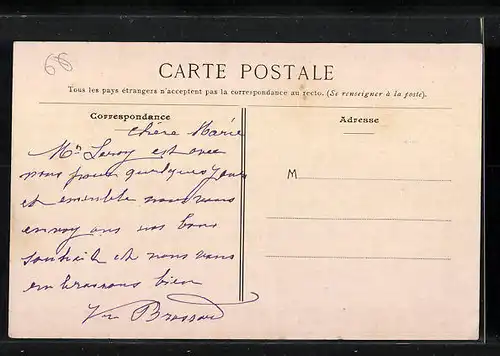 66
CARTE POSTALE
Tous les pays étrangers n'acceptent pas la correspondance au recto. (Se renseigner à la poste).
Correspondance
Adresse
chère Marie
Mn Leroy est avec
nous pour quelques jours
et ensemble nous vous
envoyons nos bons
souhaits et nous vous
embrassons bien
M